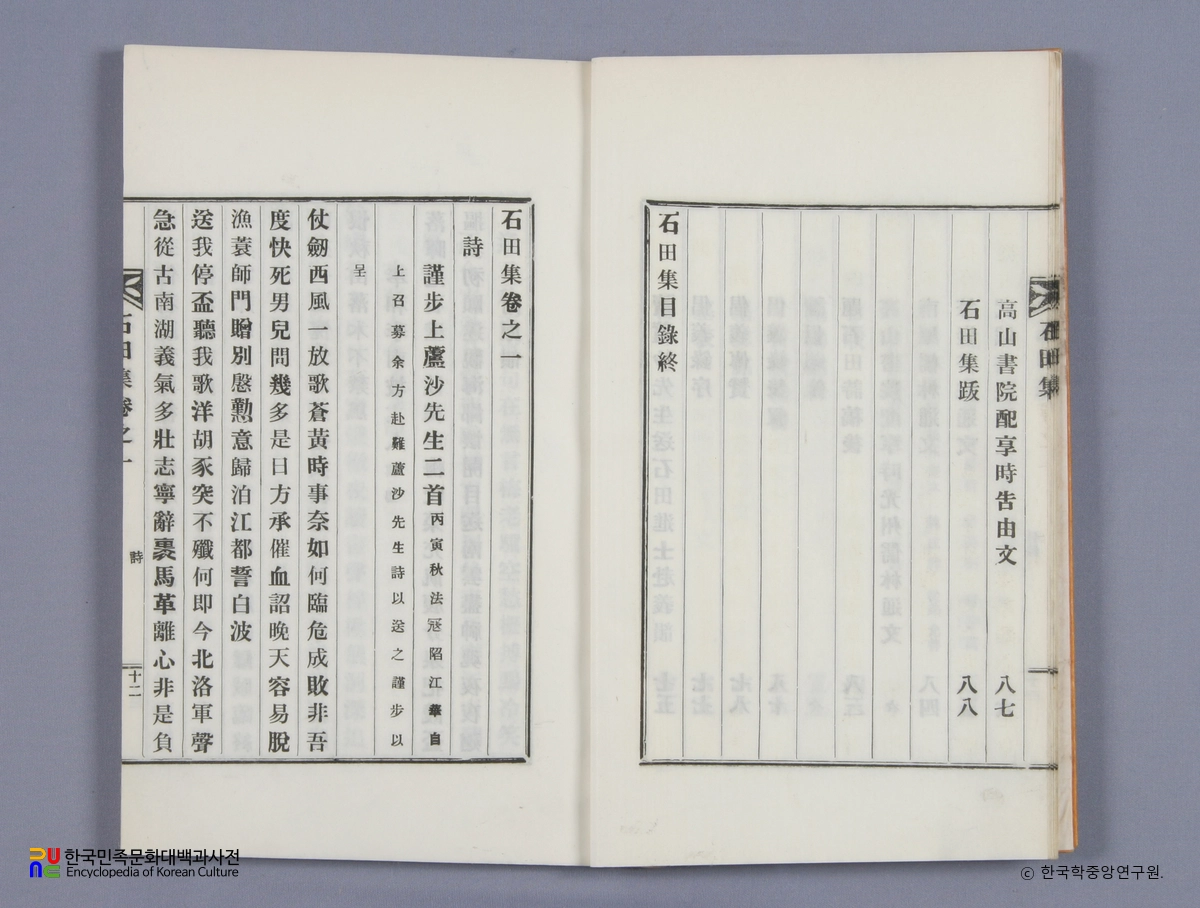 石田集
高山書院配享時告由文 八七
石田集跋 八八
石田集目錄終
石田集卷之一
詩
謹步上蘆沙先生二首 丙寅秋法寇陷江華自
上召募余方赴難蘆沙先生詩以送之謹步以
呈
仗劒西風一放歌蒼黃時事奈如何臨危成敗非吾
度快死男兒問幾多是日方承催血詔晚天容易脫
漁蓑師門贈別慇懃意歸泊江都誓白波
送我停盃聽我歌洋胡豕突不殲何即今北洛軍聲
急從古南湖義氣多壯志寧辭裹馬革離心非是負
石田集卷之一
詩
十二
한국민족문화대백과사전
Encyclopedia of Korean Culture
ⓒ 한국학중앙연구원.